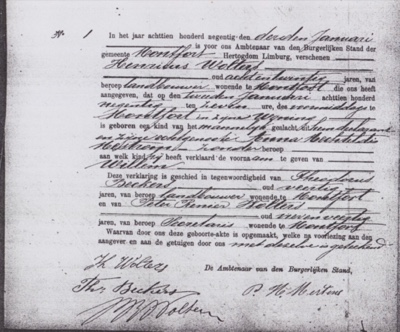 No 1 In het jaar achttien honderd negentig den derden Januari
is voor ons Ambtenaar van den Burgerlijken Stand der
gemeente Montfort Hertogdom Limburg, verschenen
Henricus Wolters
oud achtentwintig jaren, van
beroep landbouwer wonende te Montfort die ons heeft
aangegeven, dat op den tweeden Januari achttien honderd
negentig ten zeven ure, des voormiddags te
Montfort in zijne Woning
is geboren een kind van het mannelijk geslacht,
en zijne echtgenoote Anna Mechtildis
zonder beroep
aan welk kind hij heeft verklaard de voornaam te geven van
Willem
Deze verklaring is geschied in tegenwoordigheid van Theodorus
Beckers oud veertig
jaren, van beroep landbouwer wonende te Montfort
en van Peter Renier Wolters
oud negenveertig
jaren, van beroep Secretaris wonende te Montfort
Waarvan door ons deze geboorte-akte is opgemaakt, welke na voorlezing aan den
aangever en aan de getuigen door ons met dezelve is geteekend
H Wolters De Ambtenaar van den Burgerlijken Stand,
Th Beckers P. H. Mertens
P R Wolters